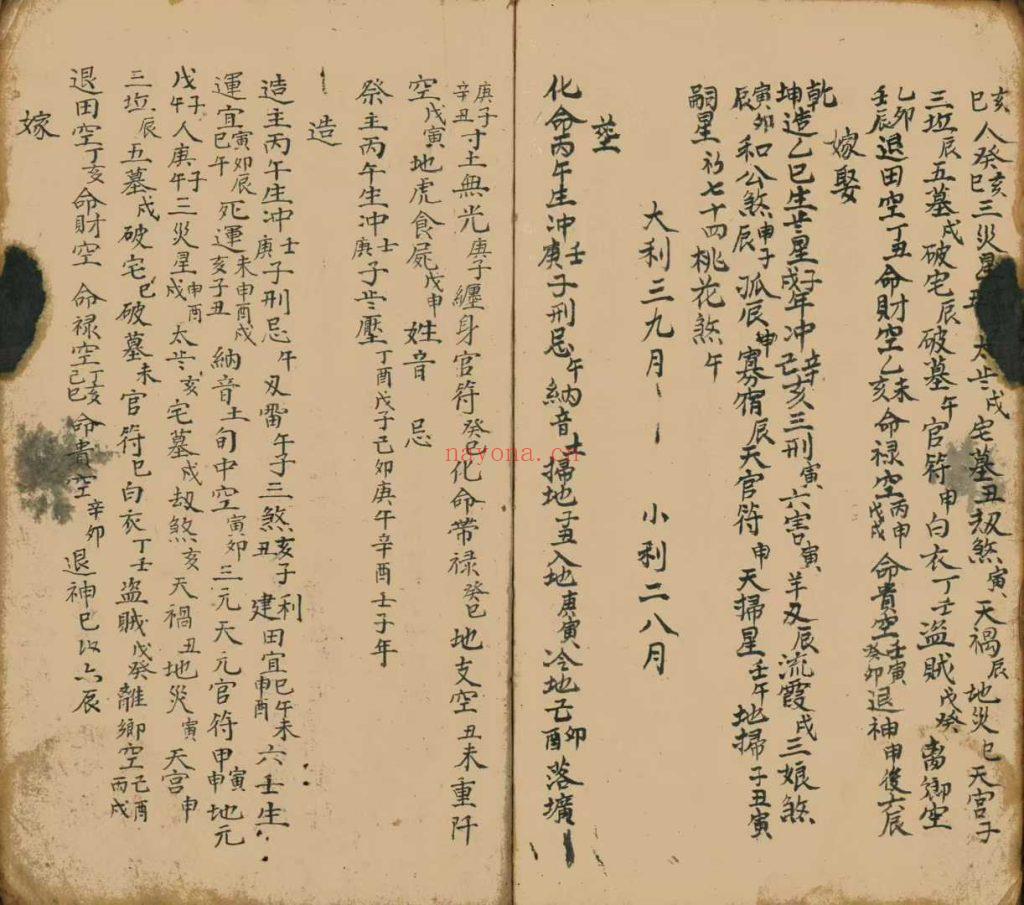 亥巳人癸亥癸巳三災星 太歲戌宅墓丑刼煞寅天禍辰地災巳天宮子
三坵辰五墓戌破宅辰破墓午官符申白衣丁壬盗賊戊癸离鄉空
乙卯壬辰退田空丁丑命財空乙未乙亥命禄空丙申戊戌命貴空壬寅癸卯退神申後六辰
嫁娶
乾坤造乙巳生 星子戌年冲辛亥己亥三刑寅六害寅羊刄辰流霞戌三娘煞
寅卯辰和公煞申子辰孤辰申寡宿辰天官符申天掃星壬午地掃子丑寅
嗣星 七十四桃花煞午
大利三九月 小利二八月
塟
化命丙午生冲壬子庚子刑忌午納音土掃地 入地庚寅冷地乙卯己酉落壙
庚子辛丑寸土無光庚子纏身官符癸巳化命帶禄癸巳地支空丑未重阡
空戊寅地虎食屍戊申姓音忌
祭主丙午生冲壬子庚子 壓丁酉戊子己卯庚午辛酉壬子年
造
造主丙午生冲壬子庚子刑忌午刄雷午子三煞亥子丑利建田宜巳午未申酉六壬生
運宜寅卯辰巳午死運未申酉戌亥子丑納音土旬中空寅卯三元天元官符甲寅甲申地元
戊子戊午人庚子庚午三災星申酉戌太歲亥宅墓戌刼煞亥天禍丑地災寅天宮申
三坵辰五墓戌破宅巳破墓未官符巳白衣丁壬盗賊戊癸離鄉空己酉丙戌
退田空丁亥命財空 命禄空丁亥己巳命貴空辛卯退神巳 六辰
嫁
nayona.cn